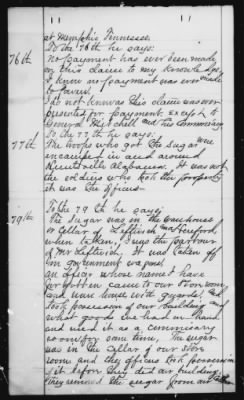 at Memphis Tennessee.
76th
To the 76th he says:
no payment has ever been made
on this claim to my knowledge
I know no payment was ever made
to
I do not know as this claim was ever
presented for payment. Except to
General and this Commission
77th
To the 77th he says:
The troops who got the sugar were
encamped in and around
Huntsville Alabama. It was not
the soldiers who took the property
it was the officers.
79th
To the 79th he says:
The sugar was in the warehouse
or cellar of Leftwich and Hereford
when taken, I was the partner
of Mr Leftwich. It was taken off
in government wagons.
an officer whose name I have
forgotten came to our store room
and ware house with guards and
took possession of our building and
what goods we had on hand
and used it as a commissary
room for some time, The sugar
was in the cellar of our store
room and the officers took possession
of it before they did our building
They removed the sugar from our cellar